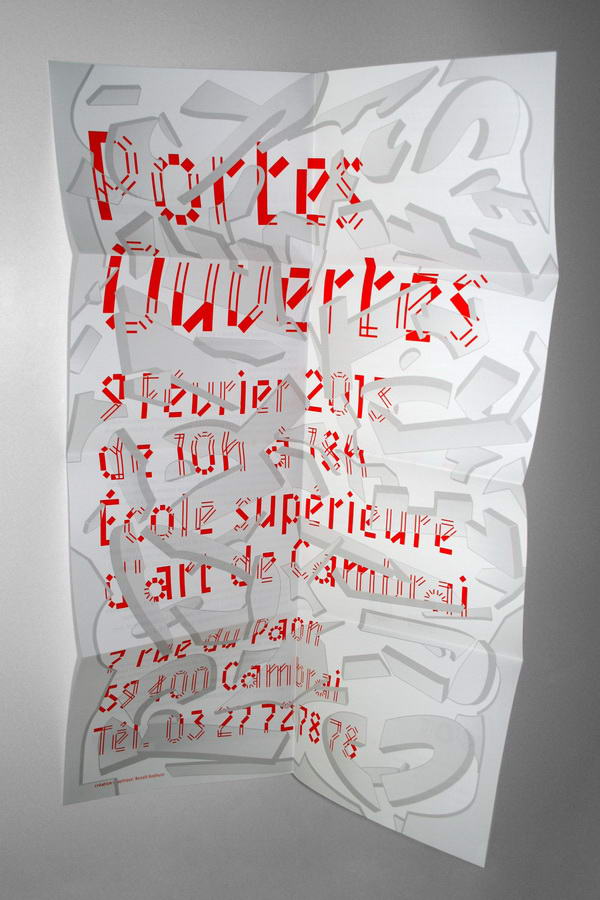 Portes
Ouvertes
9 Février 2013
de 10h à 18h
École supérieure
d'art de Cambrai
7 rue du Paon
59 400 Cambrai
Tél. 03 27 72 78 78